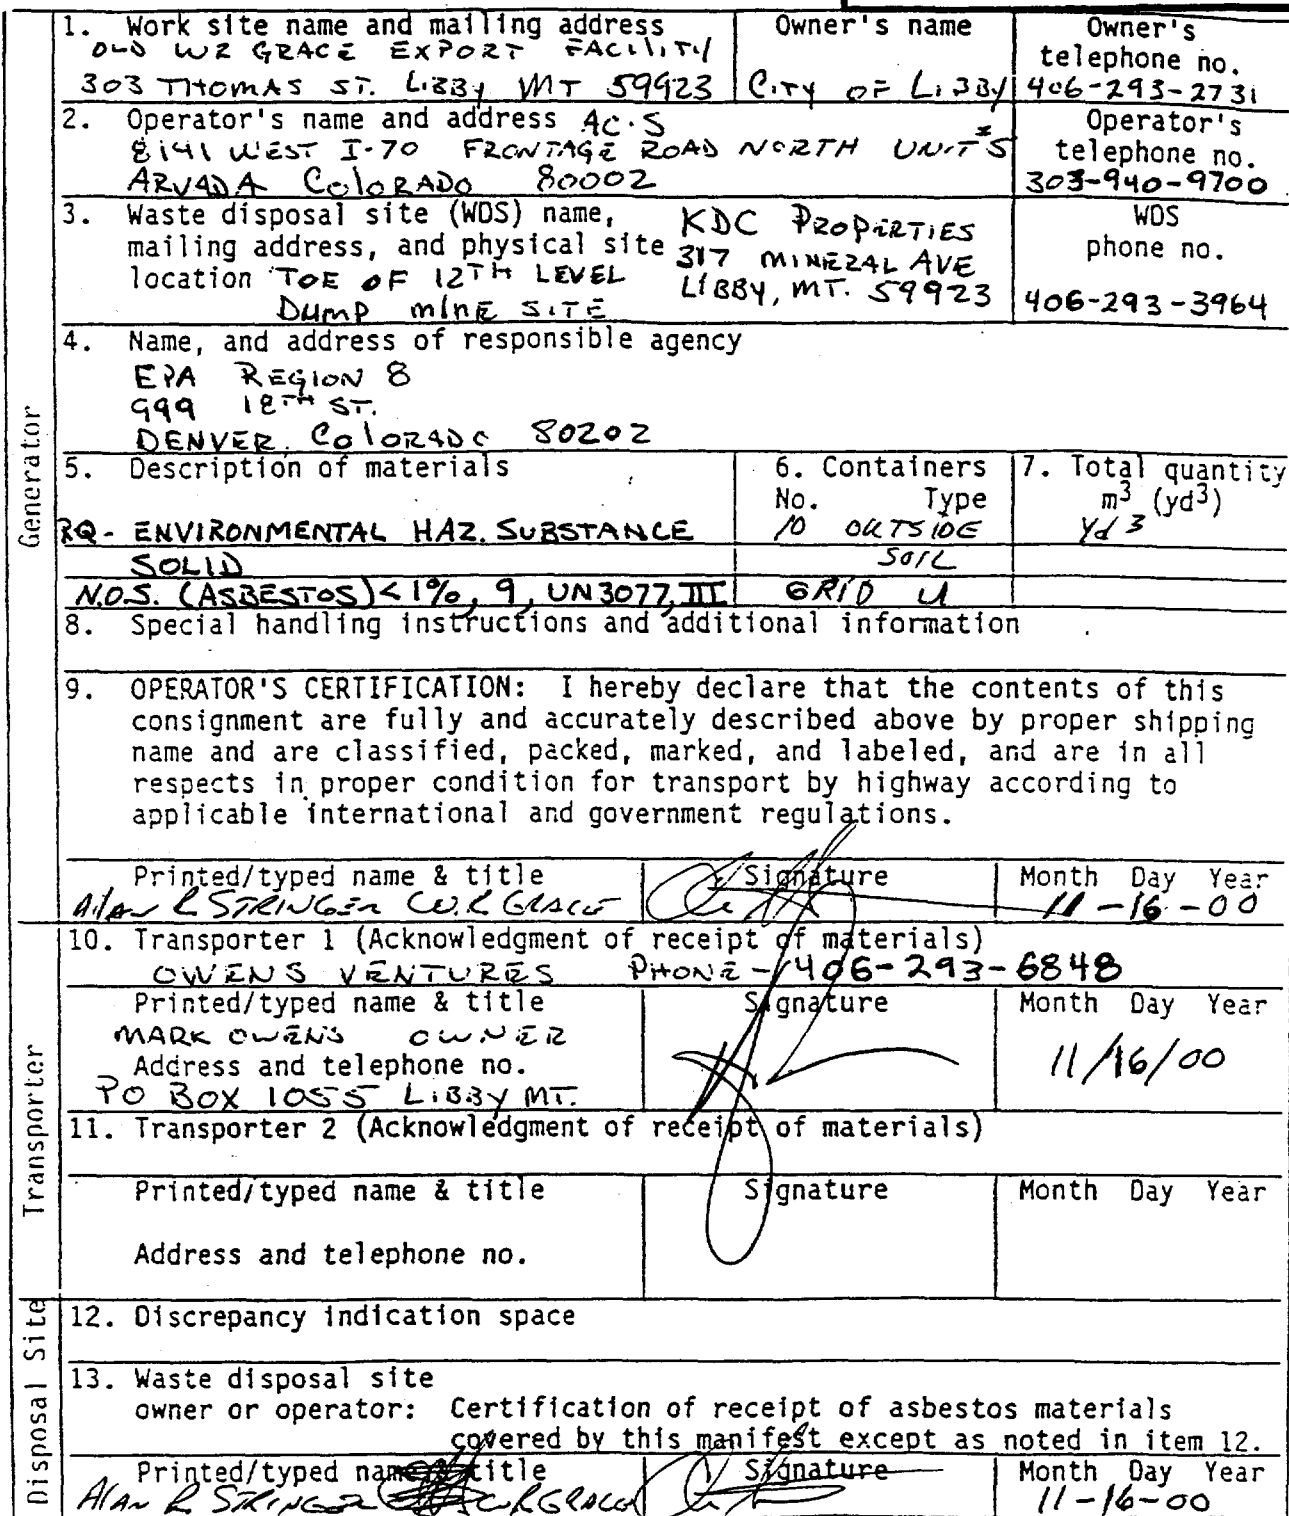 1. Work site name and mailing address
OLD WR GRACE EXPORT FACILITY
303 THOMAS ST. LIBBY MT 59923
Owner's name
CITY OF LIBBY
Owner's
telephone no.
406-293-2731
2. Operator's name and address AC.S
8141 WEST I-70 FRONTAGE ROAD NORTH UNITS
ARVADA COLORADO 80002
Operator's
telephone no.
303-940-9700
3. Waste disposal site (WDS) name,
mailing address, and physical site
location TOE OF 12TH LEVEL
DUMP MINE SITE
KDC PROPERTIES
317 MINERAL AVE
LIBBY, MT. 59923
WDS
phone no.
406-293-3964
Generator
4. Name, and address of responsible agency
EPA REGION 8
999 18TH ST.
DENVER, COLORADO 80202
5. Description of materials
6. Containers
No. Type
7. Total quantity
m³ (yd³)
RQ - ENVIRONMENTAL HAZ. SUBSTANCE
10 OUTSIDE
Yd 3
SOLID
SOIL
N.O.S. (ASBESTOS) <1%, 9, UN3077, III
GRID U
8. Special handling instructions and additional information
9. OPERATOR'S CERTIFICATION: I hereby declare that the contents of this
consignment are fully and accurately described above by proper shipping
name and are classified, packed, marked, and labeled, and are in all
respects in proper condition for transport by highway according to
applicable international and government regulations.
Printed/typed name & title
Signature
Month Day Year
Alan R STRINGER W.R GRACE
11-16-00
Transporter
10. Transporter 1 (Acknowledgment of receipt of materials)
OWENS VENTURES PHONE - 406-293-6848
Printed/typed name & title
Signature
Month Day Year
MARK OWENS OWNER
11/16/00
Address and telephone no.
PO BOX 1055 LIBBY MT.
11. Transporter 2 (Acknowledgment of receipt of materials)
Printed/typed name & title
Signature
Month Day Year
Address and telephone no.
Disposal Site
12. Discrepancy indication space
13. Waste disposal site
owner or operator: Certification of receipt of asbestos materials
covered by this manifest except as noted in item 12.
Printed/typed name & title
Signature
Month Day Year
Alan R STRINGER W R GRACE
11-16-00